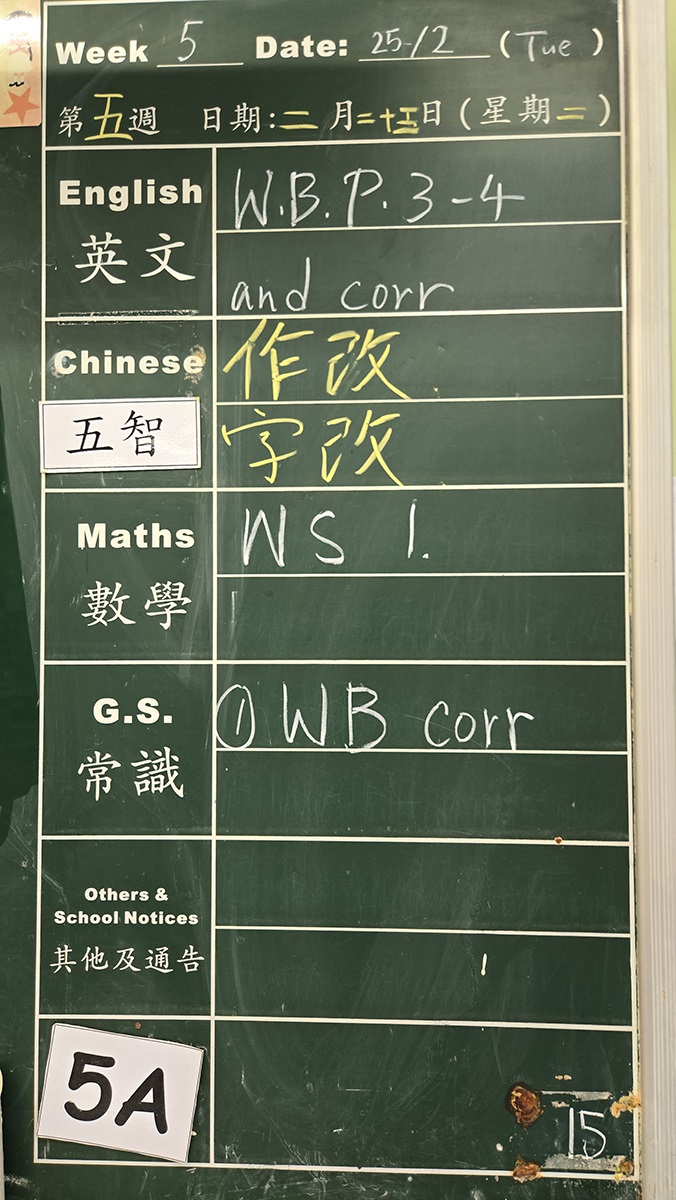 Week 5 Date: 25/2 (Tue)
第五週 日期:二月二十五日(星期二)
English
英文
W.B. P. 3-4
and corr
Chinese
五智
作改
字改
Maths
數學
WS 1.
G.S.
常識
① WB corr
Others &
School Notices
其他及通告
5A
15